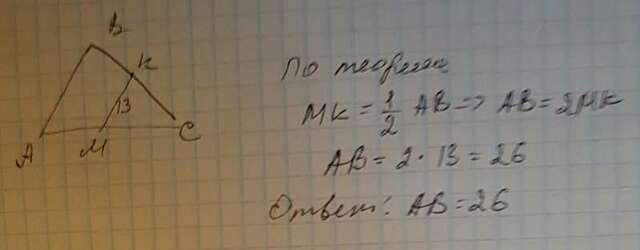 В
К
13
А
М
С
По теореме
MK = 1/2 AB => AB = 2MK
AB = 2 · 13 = 26
Ответ: AB = 26